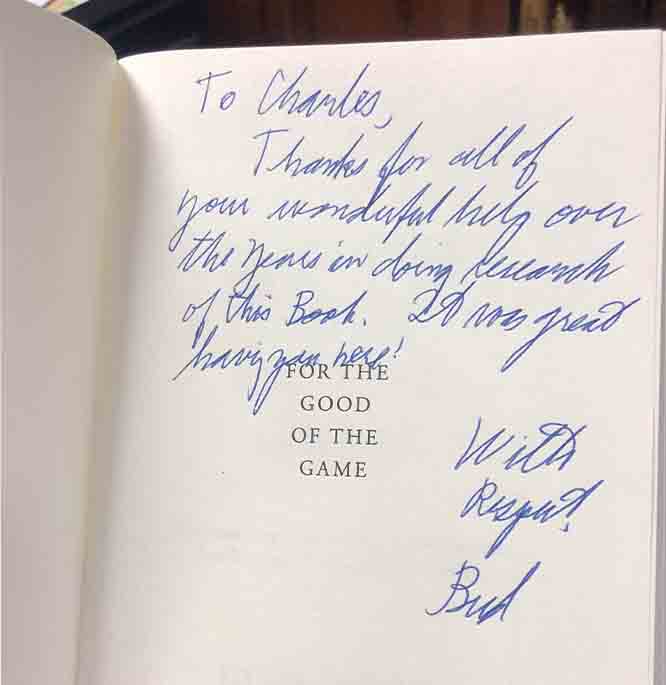 To Charles,
Thanks for all of
your wonderful help over
the years in doing research
of this Book. It was great
having you here!
FOR THE
GOOD
OF THE
GAME
With
Respect,
Bud